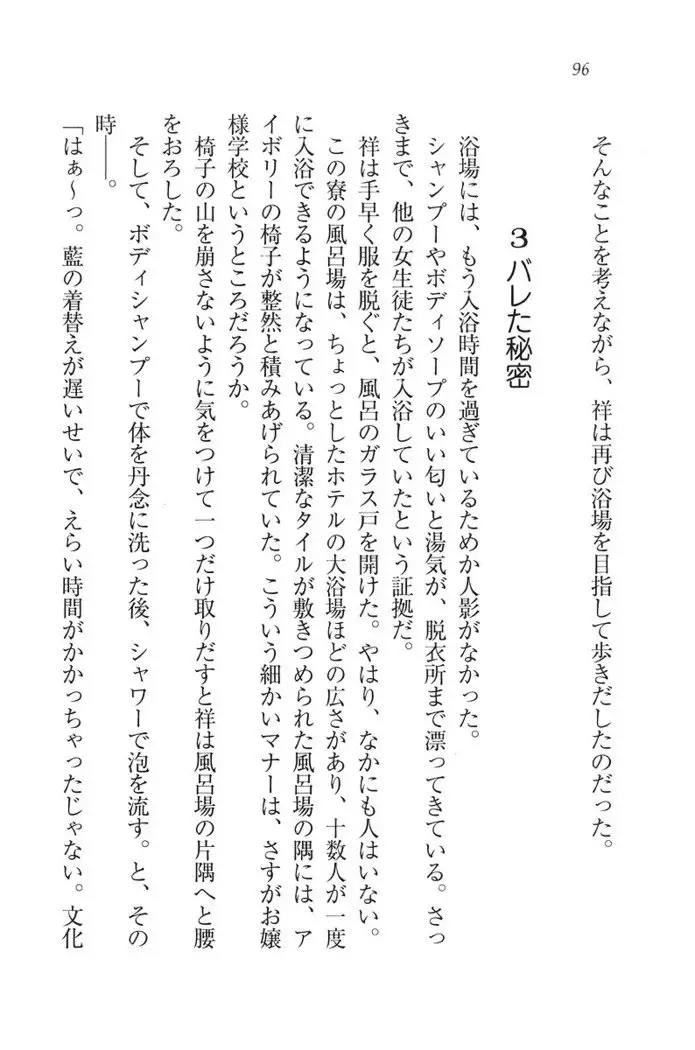 96
そんなことを考えながら、祥は再び浴場を目指して歩きだしたのだった。
3 バレた秘密
浴場には、もう入浴時間を過ぎているためか人影がなかった。
シャンプーやボディソープのいい匂いと湯気が、脱衣所まで漂ってきている。さっ
きまで、他の女生徒たちが入浴していたという証拠だ。
祥は手早く服を脱ぐと、風呂のガラス戸を開けた。やはり、なかにも人はいない。
この寮の風呂場は、ちょっとしたホテルの大浴場ほどの広さがあり、十数人が一度
に入浴できるようになっている。清潔なタイルが敷きつめられた風呂場の隅には、ア
イボリーの椅子が整然と積みあげられていた。こういう細かいマナーは、さすがお嬢
様学校というところだろうか。
椅子の山を崩さないように気をつけて一つだけ取りだすと祥は風呂場の片隅へと腰
をおろした。
そして、ボディシャンプーで体を丹念に洗った後、シャワーで泡を流す。と、その
時――。
「はぁ～っ。藍の着替えが遅いせいで、えらい時間がかかっちゃったじゃない。文化